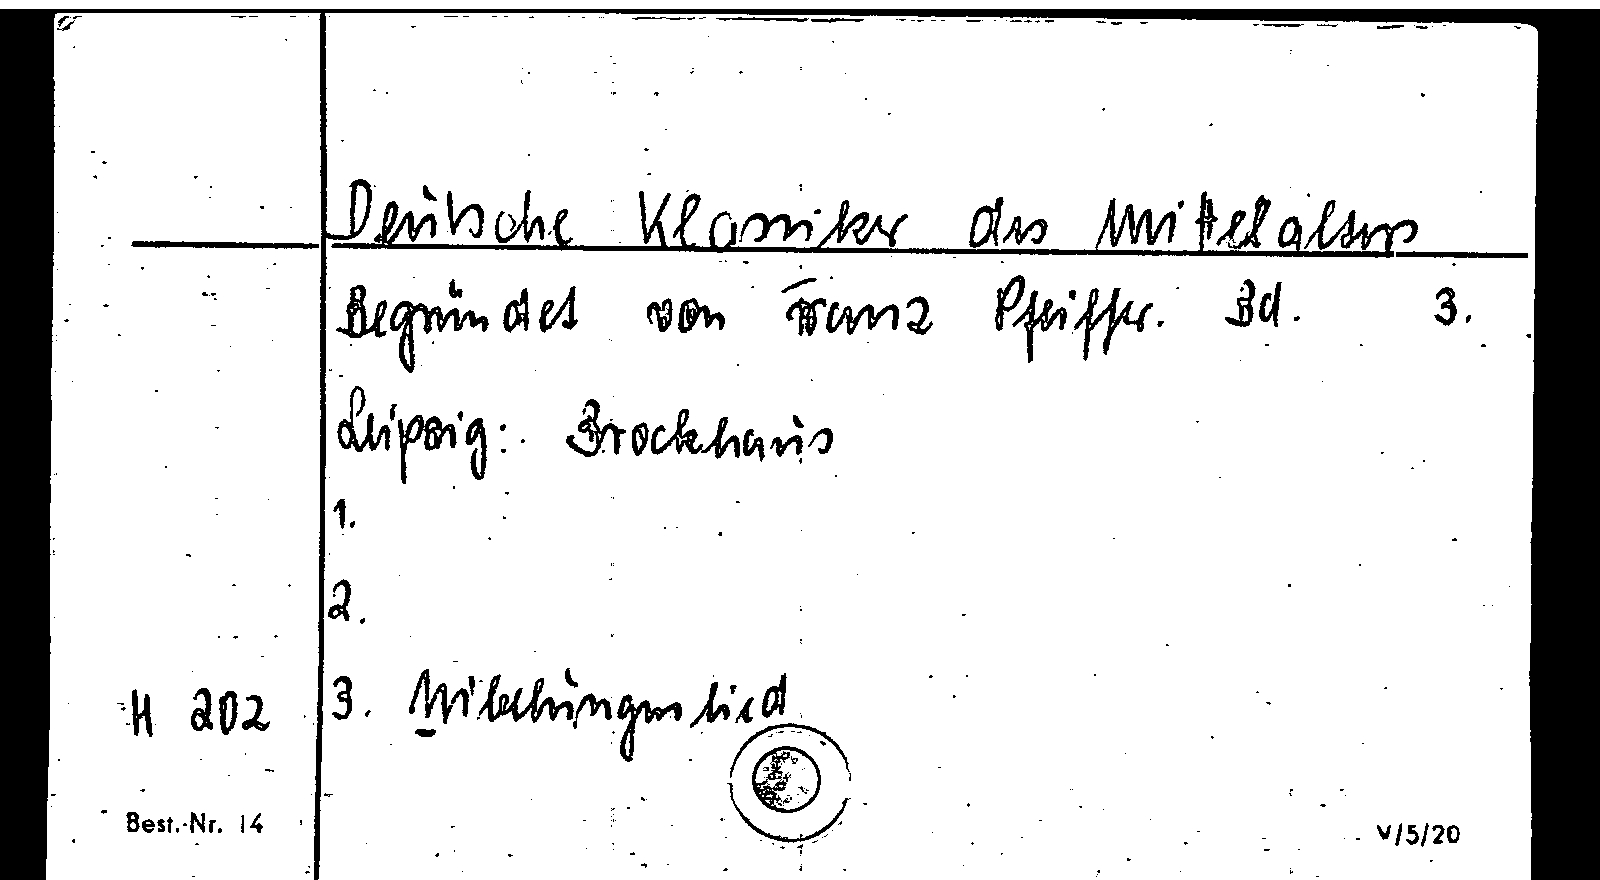 Deutsche Klassiker des Mittelalters
Begründet von Franz Pfeiffer. Bd. 3.
Leipzig: Brockhaus
1.
2.
H 202 3. Nibelungenlied
Best.-Nr. 14 V/5/20